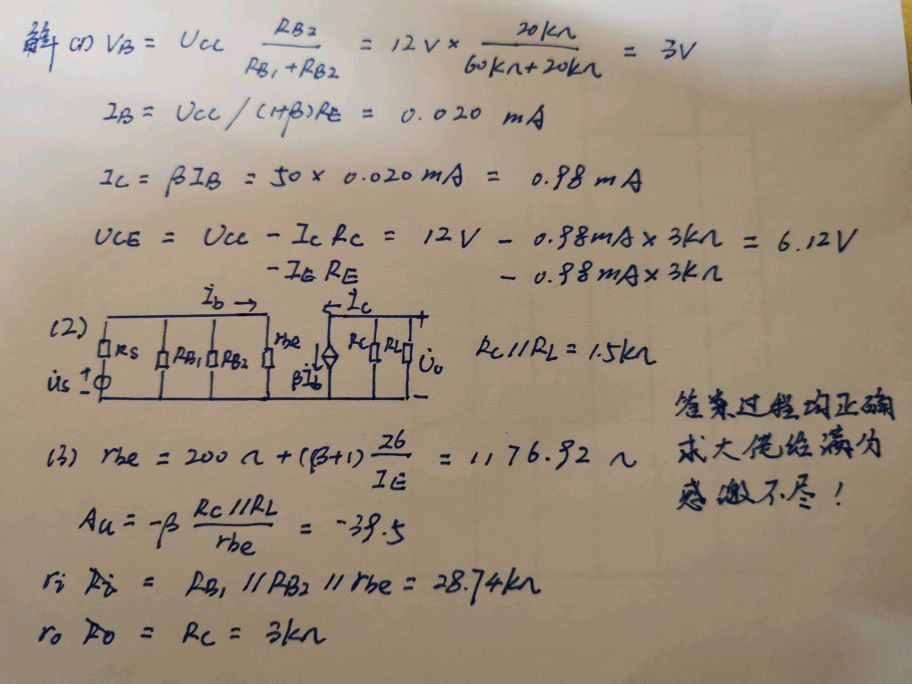 解 (1) VB = UCC RB2 / (RB1+RB2) = 12V × 20kΩ / (60kΩ+20kΩ) = 3V
IB = UCC / (1+β)RE = 0.020 mA
IC = βIB = 50 × 0.020 mA = 0.98 mA
UCE = UCC - IC RC = 12V - 0.98mA × 3kΩ = 6.12V
- IE RE - 0.98mA × 3kΩ
(2) İb → ← İc
RS RB1 RB2 rbe βİb RC RL + U̇o -
U̇s + -
RC//RL = 1.5kΩ
(3) rbe = 200 Ω + (β+1) 26 / IE = 1176.92 Ω
Au = -β RC//RL / rbe = -39.5
ri = RB1 // RB2 // rbe = 28.74kΩ
ro = RC = 3kΩ
答案过程均正确
求大佬给满分
感激不尽!